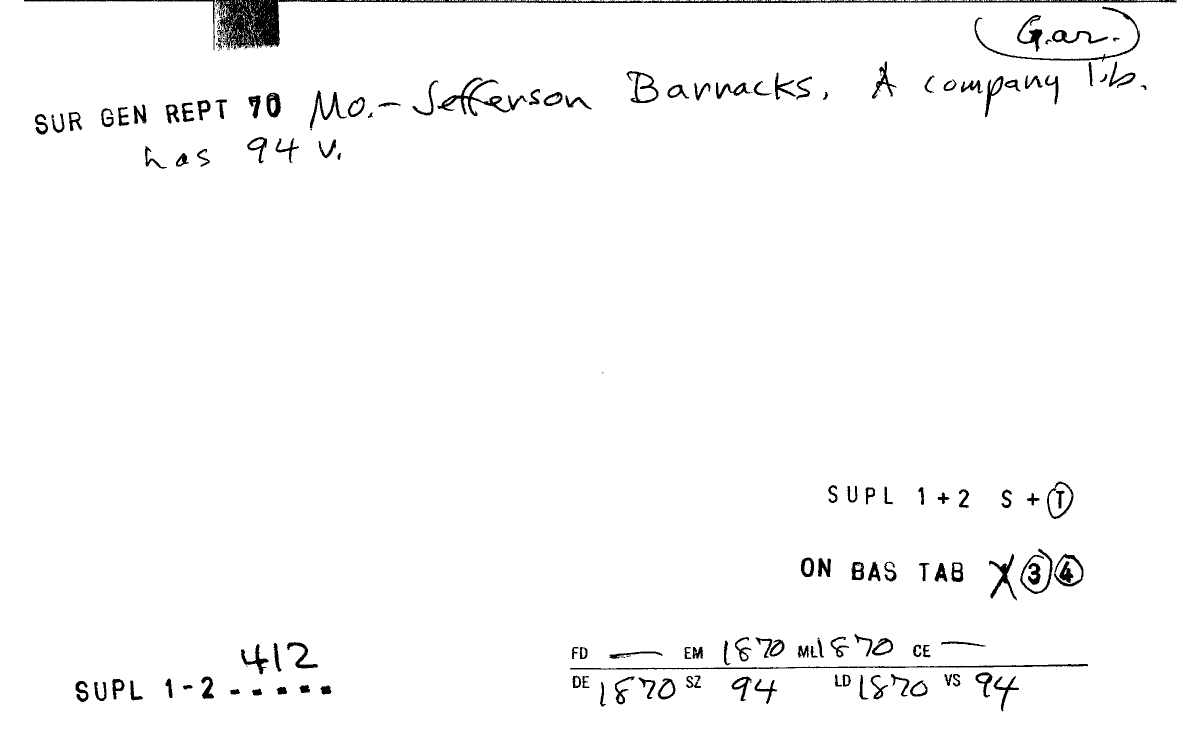 Gar.
SUR GEN REPT 70 Mo.- Jefferson Barracks. A company lib.
has 94 v.
SUPL 1+2 S + T
ON BAS TAB X 3 4
412
SUPL 1-2 -----
FD — EM 1870 ML 1870 CE —
DE 1870 SZ 94 LD 1870 VS 94